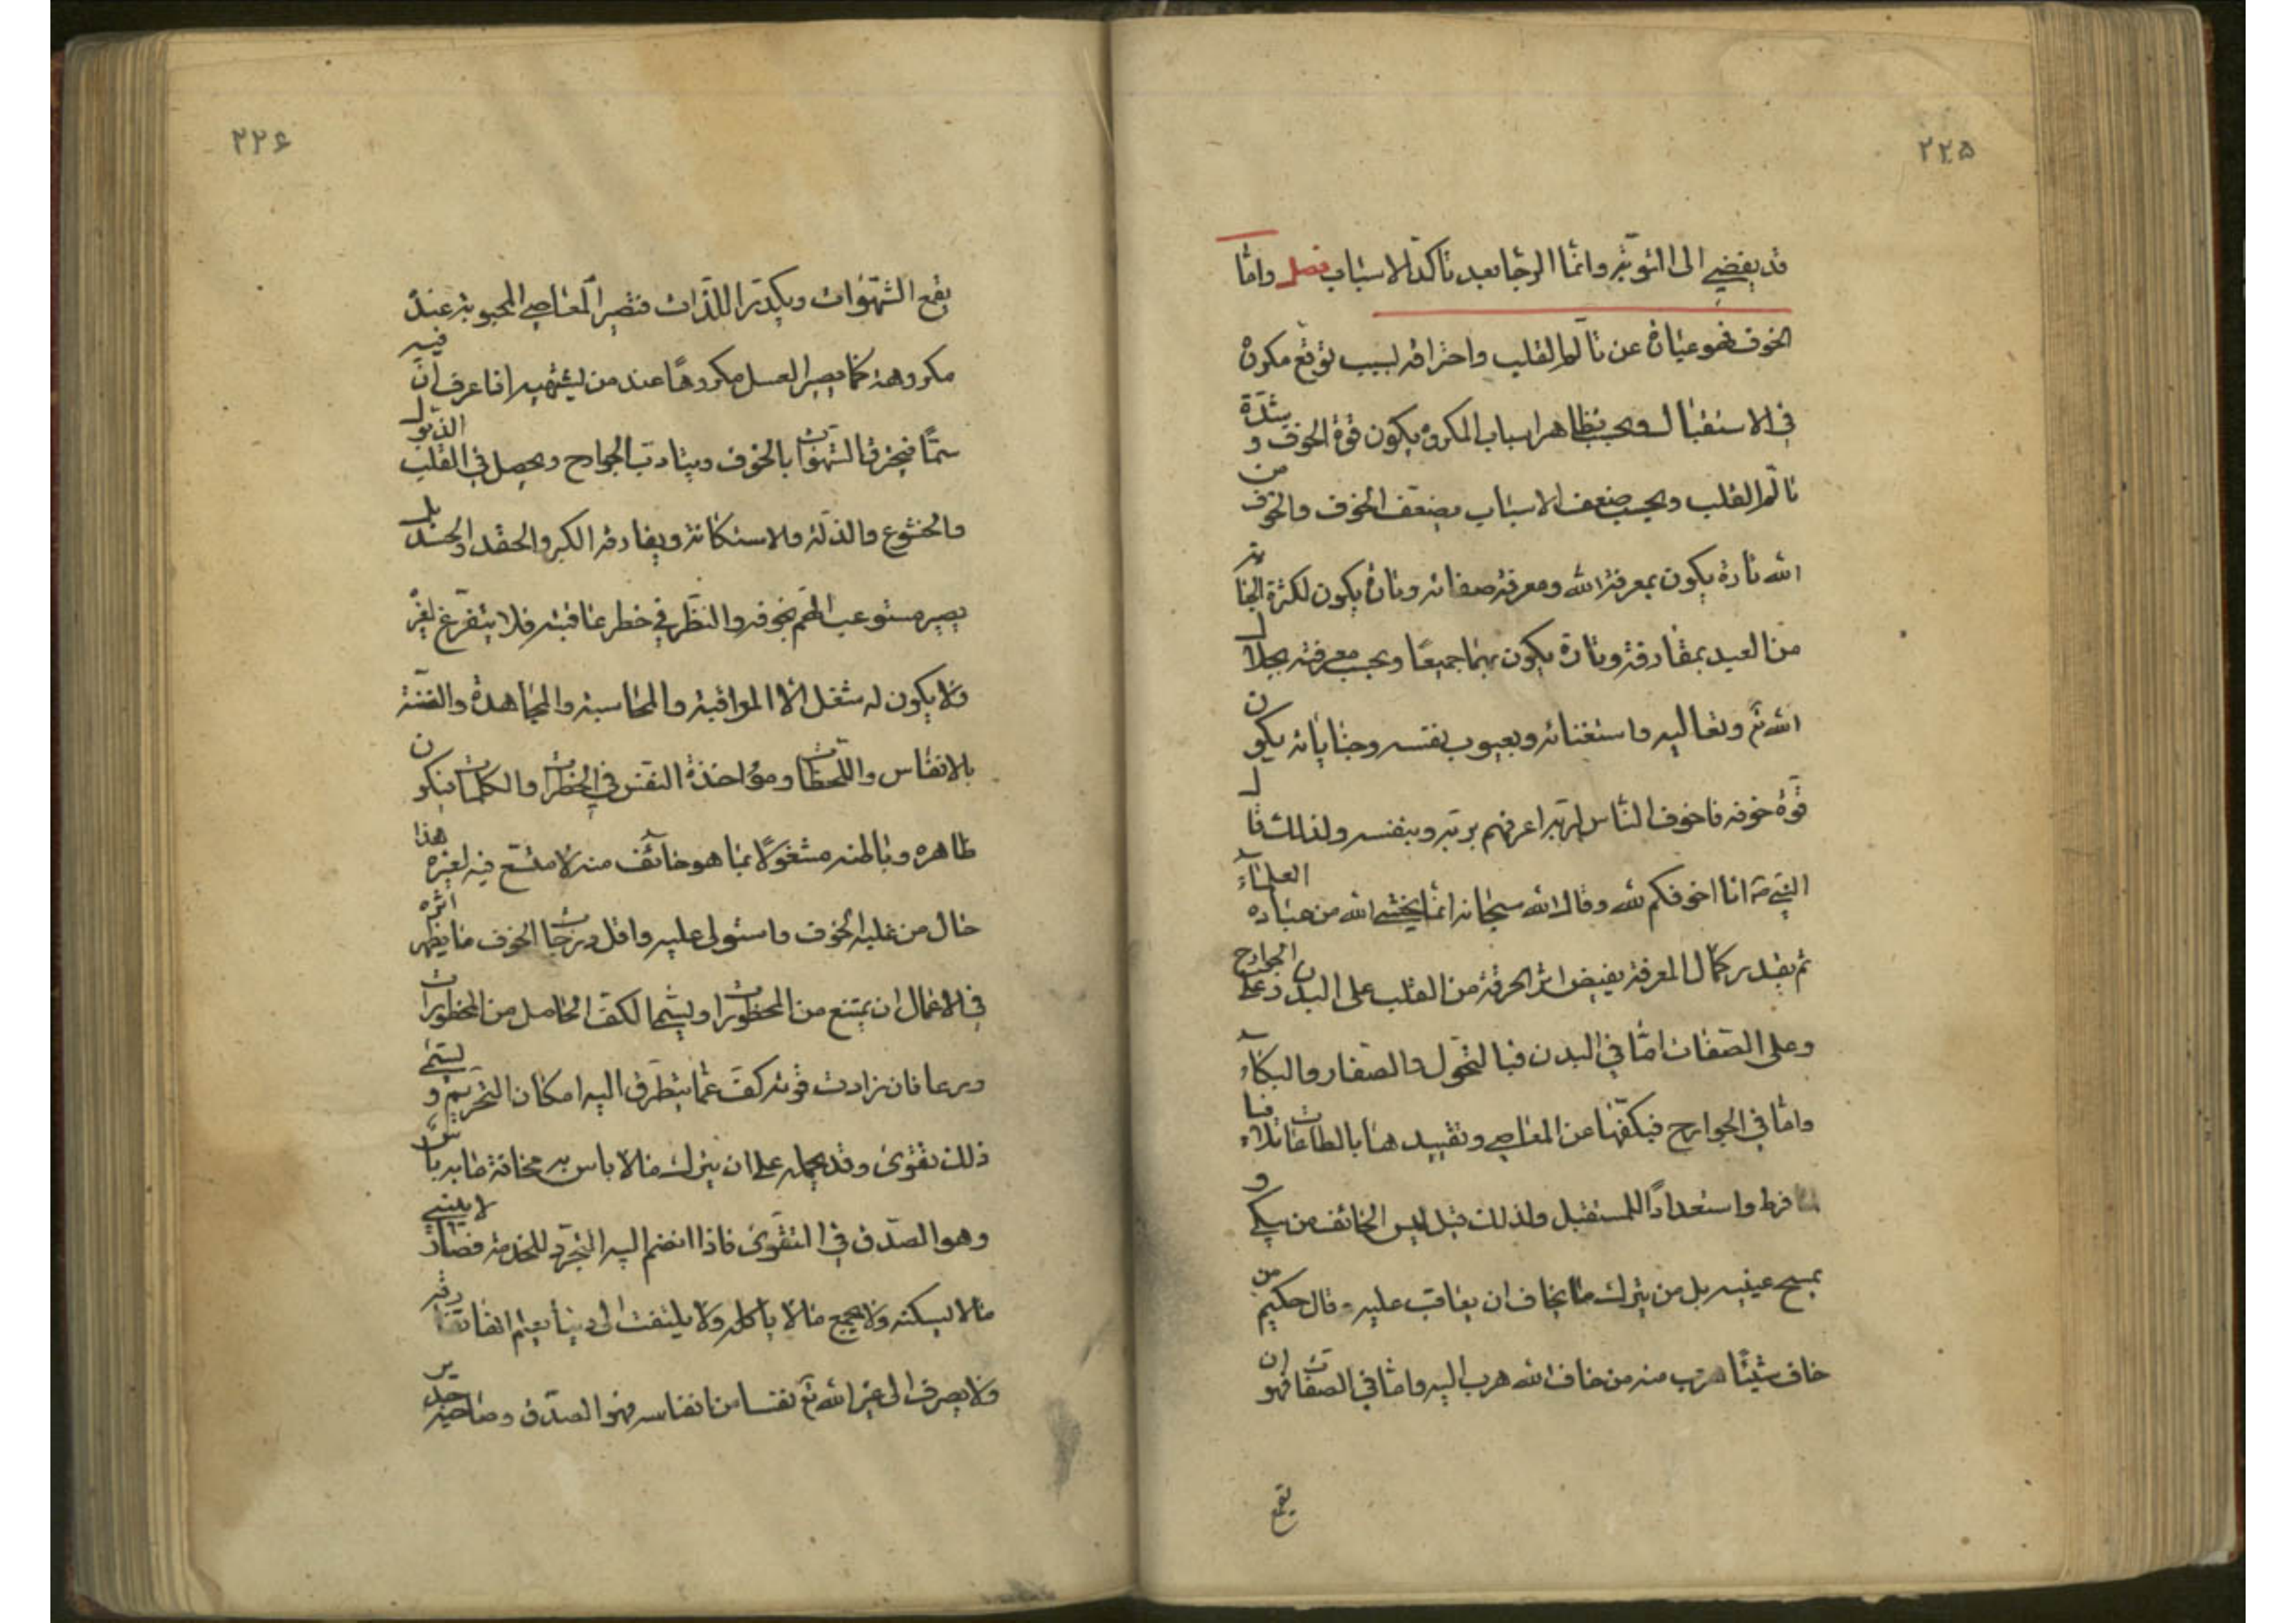 ٢٢۵
قد يفضى الى التوبة وانما الرجا بعد تاكد الاسباب فصل واما
الخوف فهو عبارة عن تألم القلب واحتراقه لسبب توقع مكروه
فى الاستقبال وبحسب تظاهر اسباب المكروه يكون قوة الخوف و شدة
تألم القلب وبحسب ضعف الاسباب يضعف الخوف والخوف من
الله تارة يكون بمعرفة الله ومعرفة صفاته وتارة يكون لكثرة الجناية
من العبد بمقارفة وتارة يكون بهما جميعا وبحسب معرفته بجلال
الله تع وتعاليه واستغنائه وبعيوب نفسه وجناياته يكون
قوة خوفه فاخوف الناس لربه اعرفهم بربه وبنفسه ولذلك قال
النبى ص انا اخوفكم لله وقال الله سبحانه انما يخشى الله من عباده العلماء
ثم بقدر كمال المعرفة يفيض اثر الحرقة من القلب على البدن وعلى الجوارح
وعلى الصفات اما فى البدن فبالنحول والصفار والبكاء
واما فى الجوارح فبكفها عن المعاصى وتقييدها بالطاعات تلافيا
لما فرط واستعدادا للمستقبل ولذلك قيل ليس الخائف من يبكى و
يمسح عينيه بل من يترك ما يخاف ان يعاقب عليه وقال حكيم من
خاف شيئا هرب منه من خاف الله هرب اليه واما فى الصفات فهو ان
يقمع
٢٢۶
يقمع الشهوات ويكدر اللذات فتصير المعاصى المحبوبة عنده
مكروهة كما يصير العسل مكروها عند من يشتهيه اذا عرف ان فيه
سما فيحترق الشهوات بالخوف ويتادب الجوارح ويحصل فى القلب الذبول
والخشوع والذلة والاستكانة ويفارقه الكبر والحقد والحسد بل
يصير مستوعب الهم بخوفه والنظر فى خطر عاقبته فلا يتفرغ لغيره
ولا يكون له شغل الا المراقبة والمحاسبة والمجاهدة والضنة
بالانفاس واللحظات ومؤاخذة النفس فى الخطرات والكلمات فيكون
ظاهره وباطنه مشغولا بما هو خائف منه لا متسع فيه لغيره هذا
حال من غلبه الخوف واستولى عليه واقل درجات الخوف مما يظهر اثره
فى الاعمال ان يمتنع من المحظورات ويسمى الكف الحاصل من المحظورات
ورعا فان زادت قوته كف عما يتطرق اليه امكان التحريم و يسمى
ذلك تقوى وقد يحمله على ان يترك ما لا باس به مخافة ما به باس
وهو الصدق فى التقوى فاذا انضم اليه التجرد للخدمة فصار لا يبنى
ما لا يسكنه ولا يجمع ما لا ياكله ولا يلتفت الى دنيا يعلم انها تفارقه
ولا يصرف الى غير الله تع نفسا من انفاسه فهو الصدق وصاحبه جدير